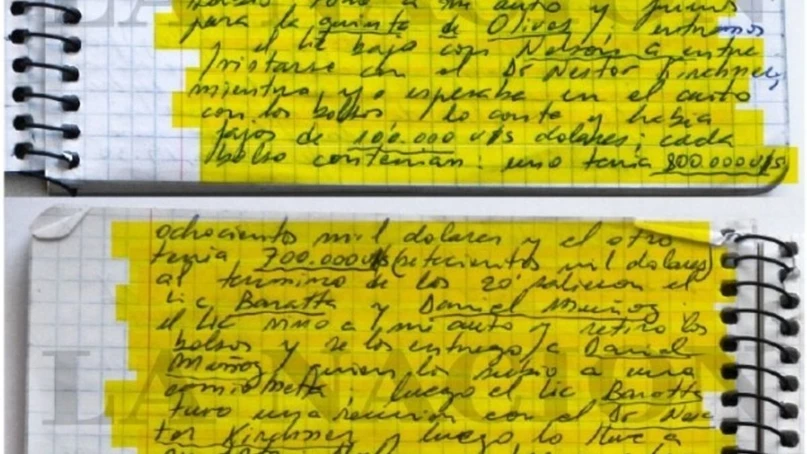 LA NACION
a mi auto y fuimos
para la quinta de Olivos, entramos
y el Lic bajo con Nelson a entre
vistarse con el Dr Nestor Kirchner,
mientras yo esperaba en el auto
con los bolsos, lo conte y habia
fajos de 100.000 u$s dolares; cada
bolso contenian: uno tenia 800.000 u$s
ochocientos mil dolares y el otro
tenia 700.000 u$s (setecientos mil dolares)
al termino de los 20' salieron el
Lic Baratta y Daniel Muñoz
el Lic vino a mi auto y retiro los
bolsos y se los entrego a Daniel
Muñoz, quien los subio a una
camioneta. luego el Lic Baratta
tuvo una reunion con el Dr Nes
tor Kirchner y luego lo lleve a
LA NACION